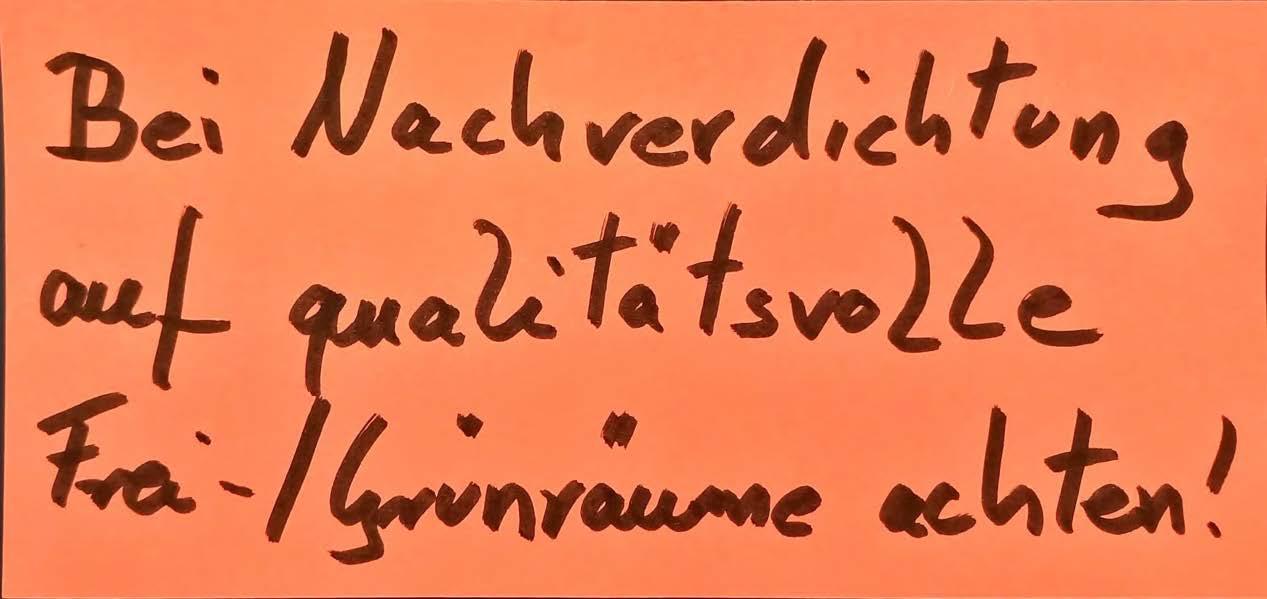 Bei Nachverdichtung
auf qualitätsvolle
Frei-/Grünräume achten!